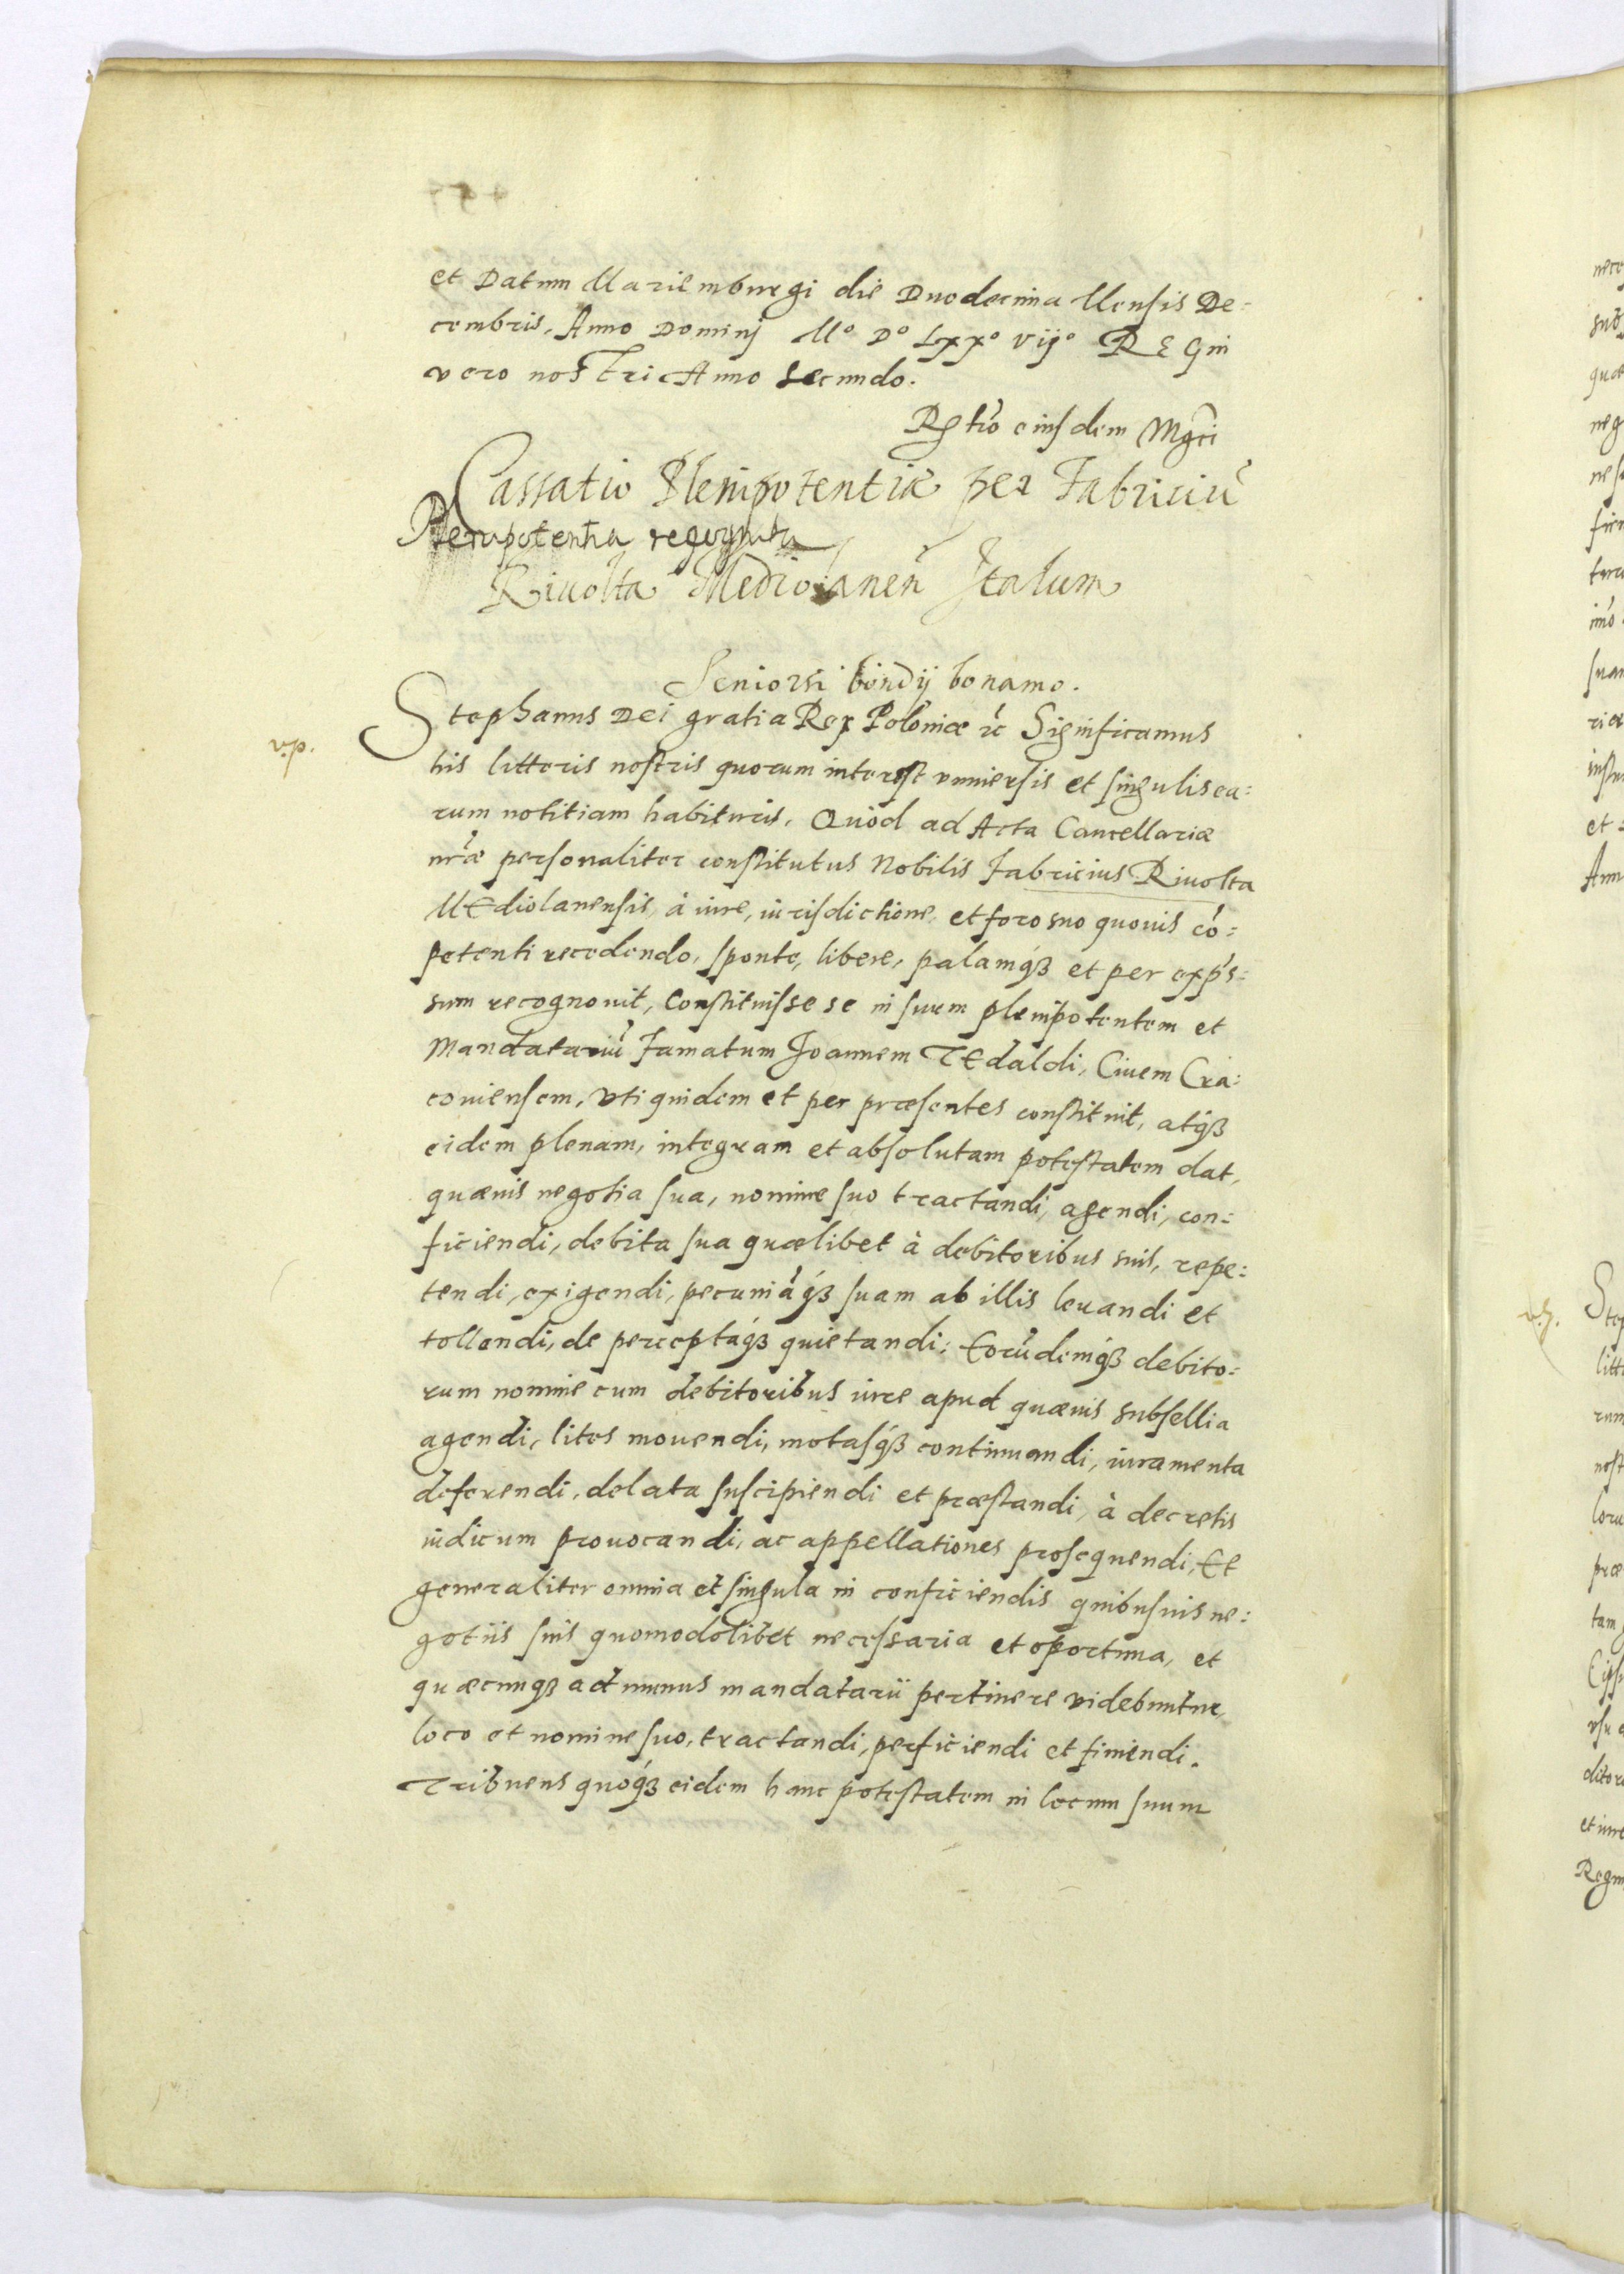 et Datum Mariemburgi die Duodecima Mensis De=
cembris, Anno Dominj M° D° Lxx° vij° REgni
vero nostri Anno secundo.
eiusdem Mgci
Cassatio Plenipotentiæ per Fabriciũ
Plenipotentia
Riuolta Mediolaneñ Italum
bonamo.
v.p.
Stephanus Dei gratia Rex Poloniæ ꝛc Significamus
his litteris nostris quorum interest vniuersis et singulis ea:
rum notitiam habituris. Quòd ad Acta Cancellariæ
nr̃æ personaliter constitutus Nobilis Fabricius Riuolta
MEdiolanensis, à iure, iurisdictione, et foro suo quouis cõ=
petenti recedendo, sponte, libere, palamq́ꝫ et per exp̃s=
sum recognouit, Constituisse se in suum plenipotentem et
Mandatariũ Famatum Joannem TEdaldi, Ciuem Cra:
couiensem, vti quidem et per præsentes constituit, atq́ꝫ
eidem plenam, integram et absolutam potestatem dat,
quæuis negotia sua, nomine suo tractandi, agendi, con=
ficiendi, debita sua quælibet à debitoribus suis, repe:
tendi, exigendi, pecuniãq́ꝫ suam ab illis leuandi et
tollendi, de perceptaq́ꝫ quietandi: Eorũdemq́ꝫ debito:
rum nomine cum debitoribus iure apud quæuis subsellia
agendi, lites mouendi, motasq́ꝫ continuandi, iuramenta
deferendi, delata suscipiendi et præstandi, à decretis
iudicum prouocandi, ac appellationes prosequendi, Et
generaliter omnia et singula in conficiendis quibusuis ne:
gotiis suis quomodolibet necessaria et oportuna, et
quæcunqꝫ ad munus mandatarii pertinere videbuntur,
loco et nomine suo, tractandi, perficiendi et finiendi.
Tribuens quoq́ꝫ eidem hanc potestatem in locum suum